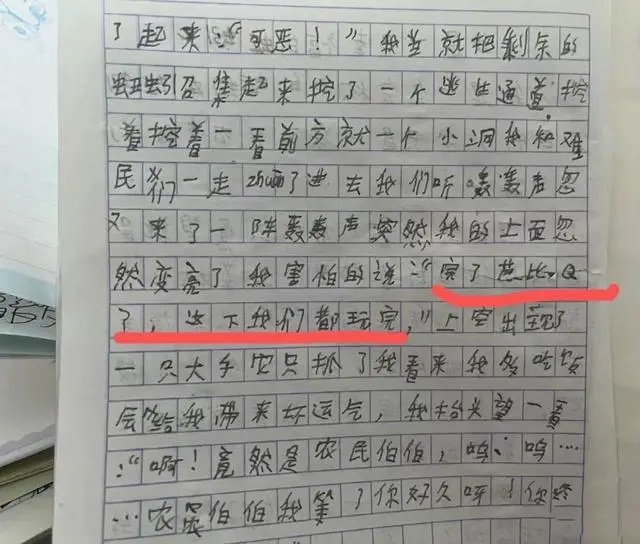 了起来:“可恶！”我并就把剩余的
蚂蚁召集起来挖了一个逃生通道，挖
着挖着一看前方就一个小洞我和难
民们一走 了进去我们听轰轰声忽
又来了一阵轰轰声突然我的上面忽
然变亮了我害怕的说:“完了芭比Q
了，这下我们都玩完，”上空出现了
一只大手农只抓了我看来我多吃饭
会给我带来坏运气，我抬头望一看
:“啊！竟然是农民伯伯，呜、呜…
…农民伯伯我等了你好久呀！你终